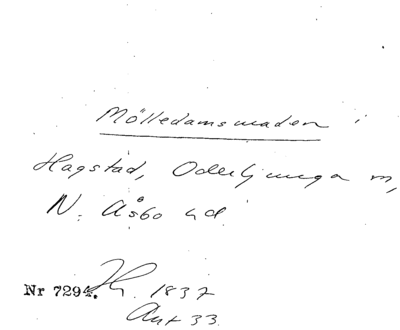 Mölledamsmaden i
Hagstad, Oderljunga sn,
N. Åsbo hd.
Nr 7294. 1837
Ant 33.